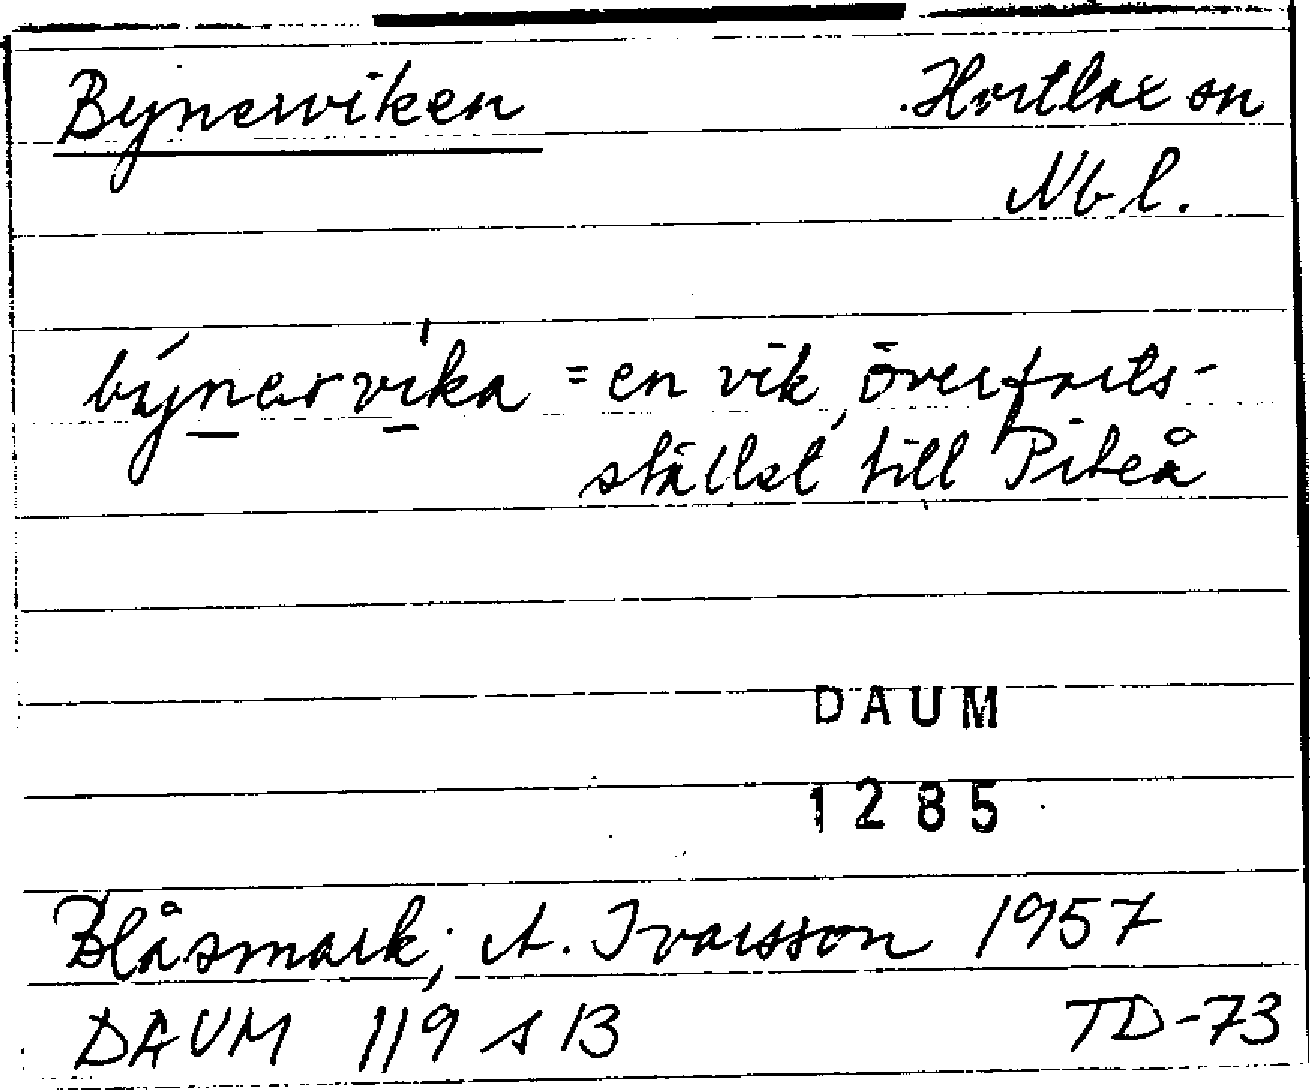 Bynerviken Hortlax sn
Nb l.
býnervika = en vik, överfarts-
stället till Piteå
DAUM
1285
Blåsmark; A. Ivarsson 1957
DAUM 119 s 13 TD-73